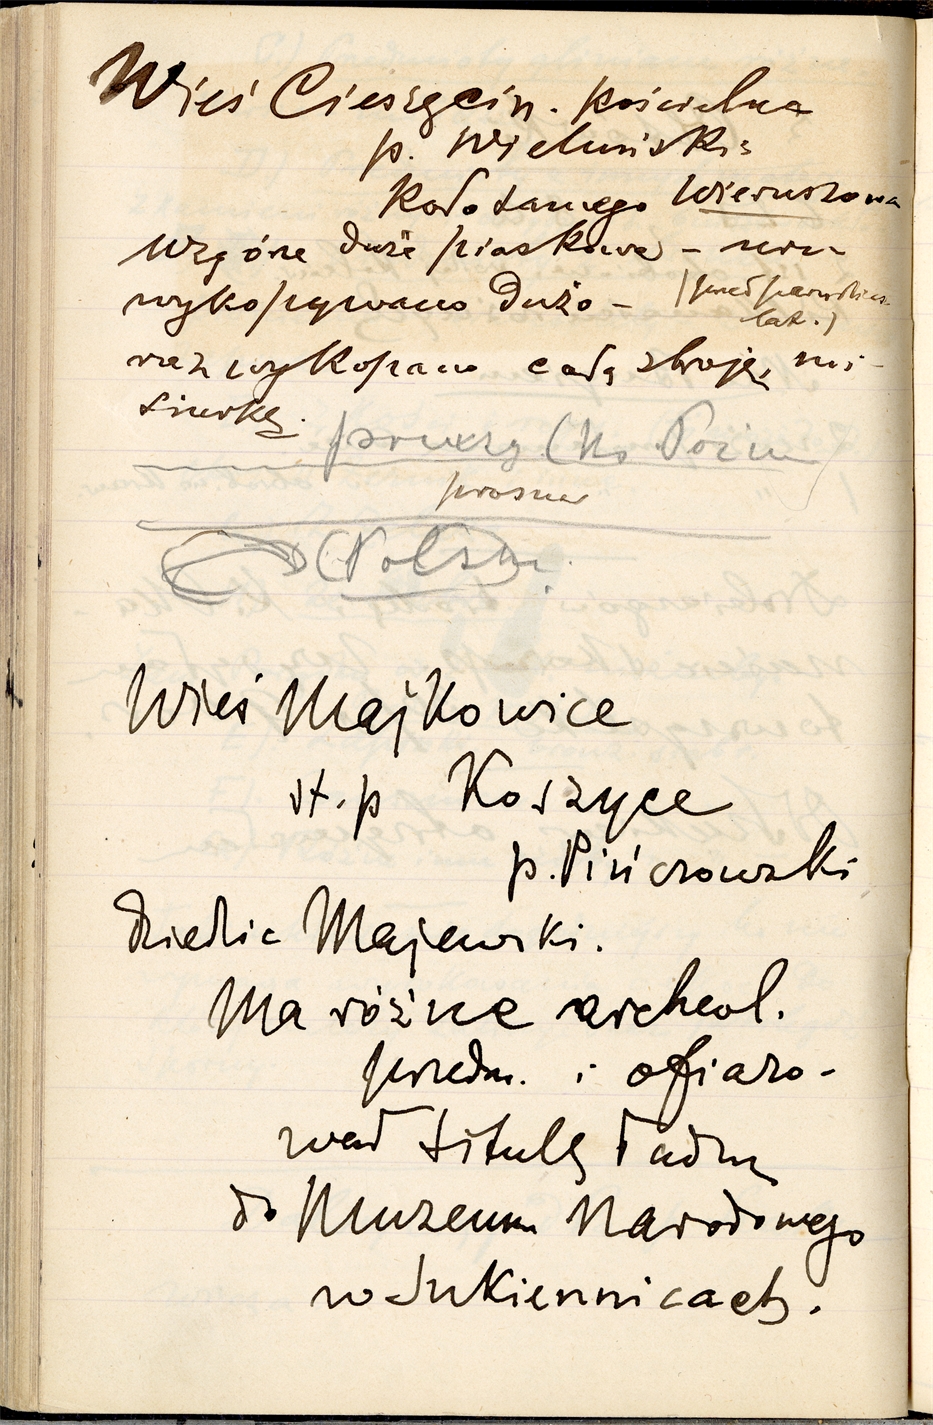 Wieś Cieszęcin. kościelna
p. Wieluński
Koło samego Wieruszowa
Wzgórze duże piaskowe – urn
wykopywano dużo – (przed
lat.)
raz wykopano całą zbroję, mi-
siurkę.
(Ks. Pozn
prosna
(Polska).
Wieś Majkowice
st. p Koszyce
p. Pińczowski
dziedzic Majewski.
Ma różne archeol.
przedm. i ofiaro-
wał situlę ładną
do Muzeum Narodowego
w Sukiennicach.